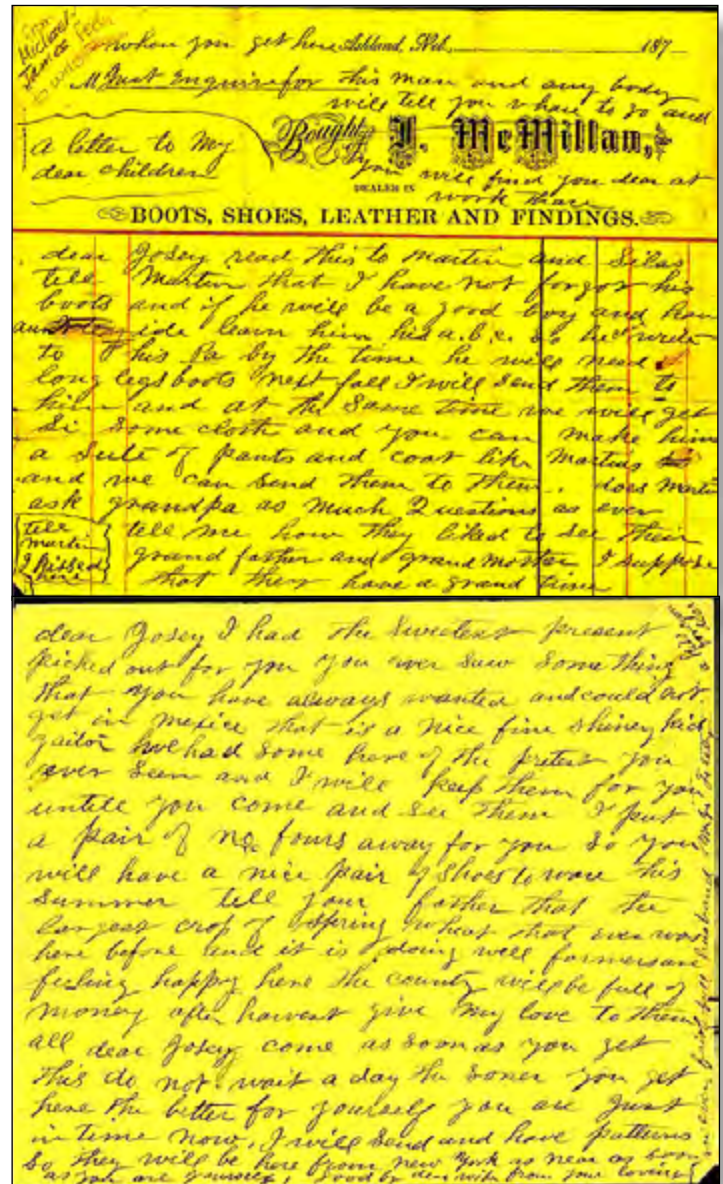 from
Michael
James
when you get here Ashland, Neb. 187
M Just Enquire for this man and any body
will tell you whare to go and
a letter to my
dear children
Bought of J. McMillan,
you will find you dear at
DEALER IN
work thare
BOOTS, SHOES, LEATHER AND FINDINGS.
dear Josey read this to martin and Silas
tell Martin that I have not forgot his
boots and if he will be a good boy and have
aunt ide learn him his a.b.c. so he write
to his Pa by the time he will need
long legs boots next fall I will send them to
him and at the same time we will get
Si some cloth and you can make him
a sute of pants and coat like Martins
and we can send them to them. does Martin
ask grandpa as much Questions as ever
tell
martin
I kissed
here
tell me how they liked to see their
grand father and grand mother I suppose
that they have a grand time
dear Josey I had the sweetest present
picked out for you you ever saw Something
that you have always wanted and could not
get in mexico that is a nice fine shiney kid
gaitor we had some here of the pretest you
ever seen and I will keep them for you
untill you come and see them I put
a pair of no fours away for you so you
will have a nice pair of shoes to ware this
Summer tell your father that the
largest crop of spring wheat that ever was
here before and it is doing well farmers are
feeling happy here the county will be full of
money after harvest give my love to them
all dear Josey come as soon as you get
this do not wait a day the soner you get
here the better for yourself you are Just
in time now, I will send and have patterns
So they will be here from new York as near as soon
as you are yourself, good by dear wife from your loving
husband